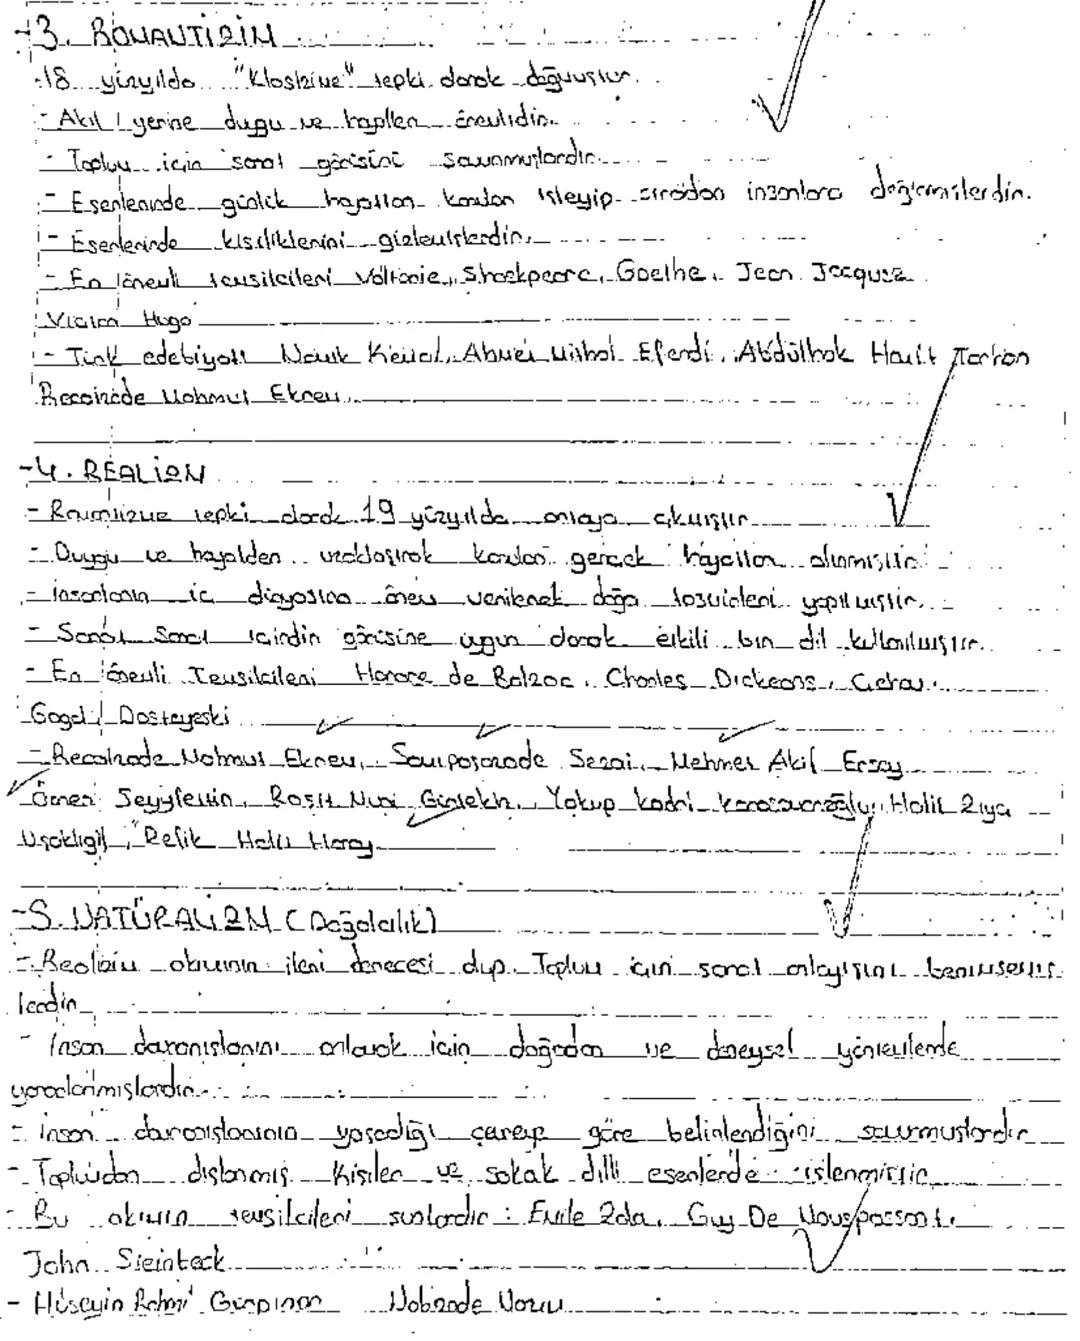 -3. ROMANTİZİM
-18. yüzyılda "Klasizme" tepki olarak doğmuştur.
- Akıl yerine duygu ve hayaller önemlidir.
- Toplum için sanat görüşünü savunmuşlardır.
- Eserlerinde günlük hayattan konuları işleyip sıradan insanlara değinmişlerdir.
- Eserlerinde kişiliklerini gizlemişlerdir.
- En önemli temsilcileri Voltaire, Shaekpeare, Goethe, Jean Jacques
Victor Hugo
- Türk edebiyatı Namık Kemal, Ahmet Mithat Efendi, Abdülhak Hamit Tarhan
Recaizade Mahmut Ekrem
-4. REALİZM
- Romantizme tepki olarak 19 yüzyılda ortaya çıkmıştır
- Duygu ve hayalden uzaklaşırak konuları gerçek hayattan alınmıştır
- İnsanların iç dünyasına önem verilerek doğa tasvirleri yapılmıştır.
- Sanat Sanat içindir görüşüne uygun olarak etkili bir dil kullanılmıştır.
- En önemli Temsilcileri Honore de Balzac, Charles Dickeans,
Gogol, Dostayeski
- Recaizade Mahmut Ekrem, Samipaşazade Sezai, Mehmet Akif Ersoy
Ömer Seyyfettin, Reşit Nuri Güntekin, Yakup kadri karaosmanoğlu, Halit Ziya
Uşaklıgil, Refik Halit Karay
-5. NATÜRALİZM (Doğalcılık)
- Realizm akımının ileri derecesi olup Toplum için sanat anlayışını benimsemiş
lerdir
- İnsan davranışlarını anlamak için doğadan ve deneysel yöntemlerde
yararlanmışlardır.
- İnsan davranışlarının yaşadığı çevreye göre belirlendiğini savunmuşlardır
- Toplumdan dışlanmış kişiler ve sokak dilli eserlerde işlenmiştir
- Bu akımın temsilcileri şunlardır : Emile Zola, Guy De Mouspassant,
John Steinbeck
- Hüseyin Rahmi Gürpınar Nabizade Nazım